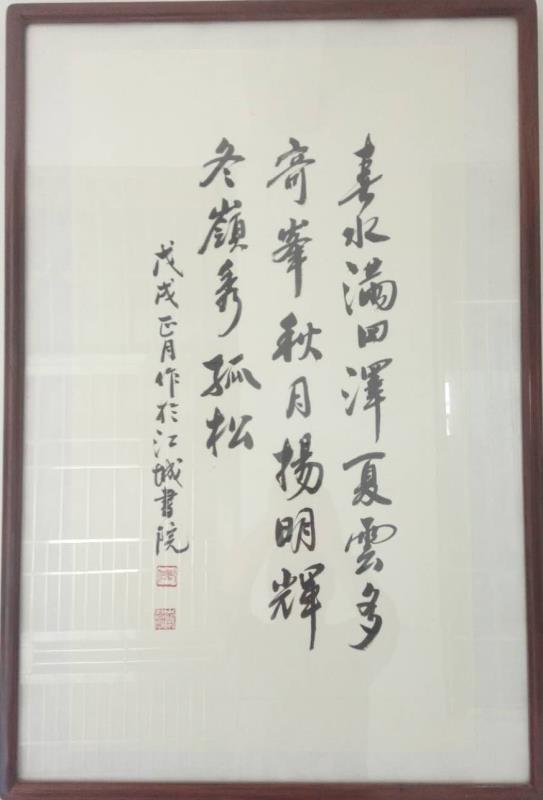 春水滿四澤夏雲多
奇峯秋月揚明輝
冬嶺秀孤松
戊戌正月作於江城書院